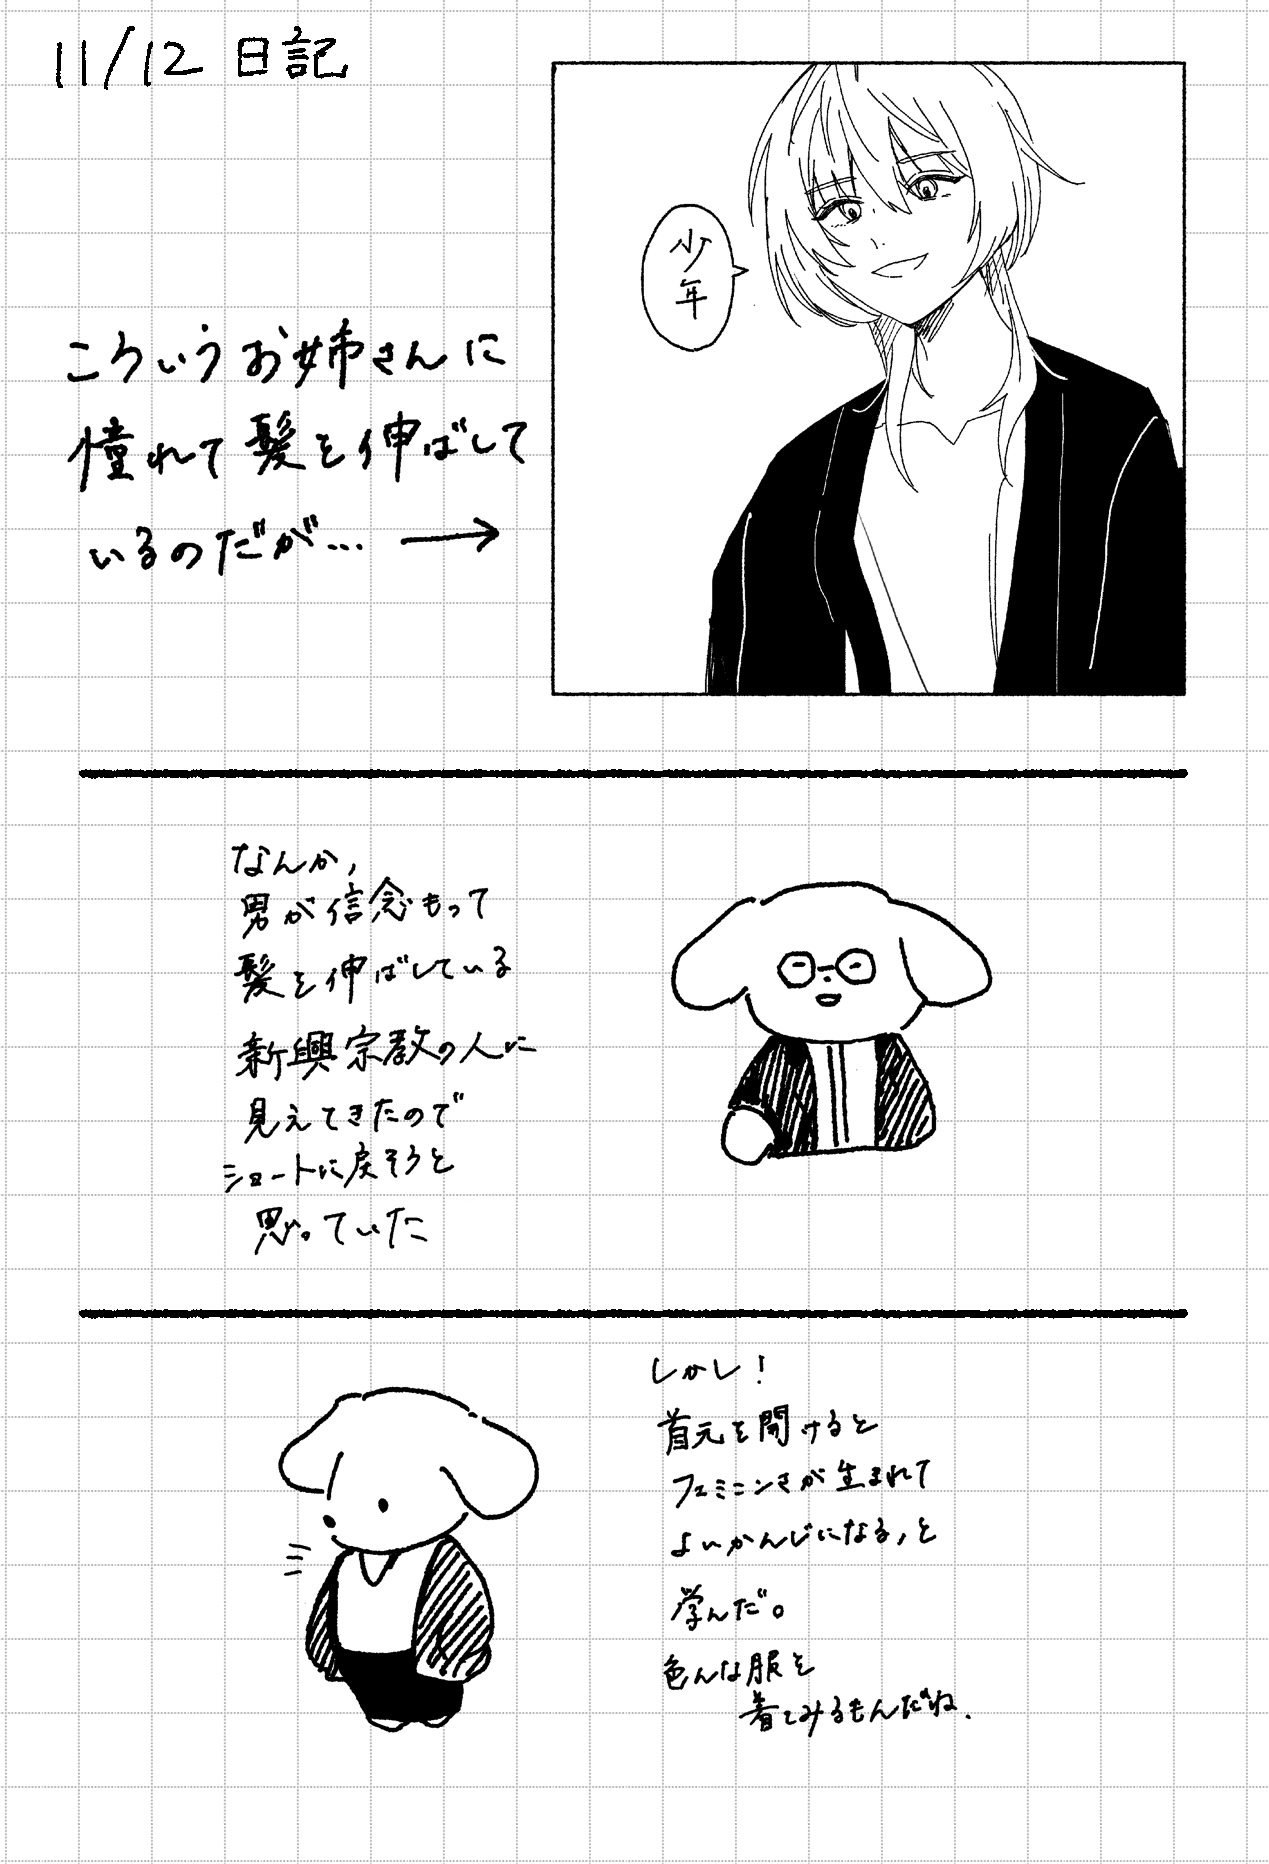 11/12 日記
こういうお姉さんに
憧れて髪を伸ばして
いるのだが… →
少年
なんか,
男が信念もって
髪を伸ばしている
新興宗教の人に
見えてきたので
ショートに戻そうと
思っていた
しかし!
首元を開けると
フェミニンさが生まれて
よいかんじになる,と
学んだ。
色んな服を
着てみるもんだね.